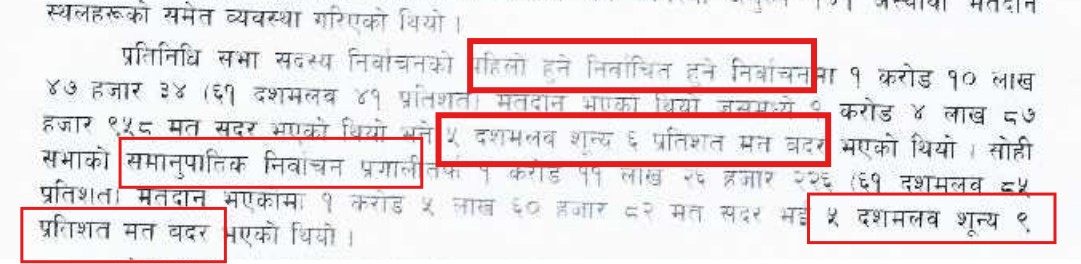 स्थलहरूको समेत व्यवस्था गरिएको थियो ।
प्रतिनिधि सभा सदस्य निर्वाचनको पहिलो हुने निर्वाचित हुने निर्वाचनमा १ करोड १० लाख
४७ हजार ३४ (६१ दशमलव ४१ प्रतिशत) मतदान भएको थियो जसमध्ये १ करोड ४ लाख ८७
हजार ९५८ मत सदर भएको थियो भने ५ दशमलव शून्य ६ प्रतिशत मत बदर भएको थियो । सोही
सभाको समानुपातिक निर्वाचन प्रणालीतर्फ १ करोड ११ लाख २६ हजार २२६ (६१ दशमलव ८५
प्रतिशत) मतदान भएकोमा १ करोड ५ लाख ६० हजार ८२ मत सदर भई ५ दशमलव शून्य ९
प्रतिशत मत बदर भएको थियो ।